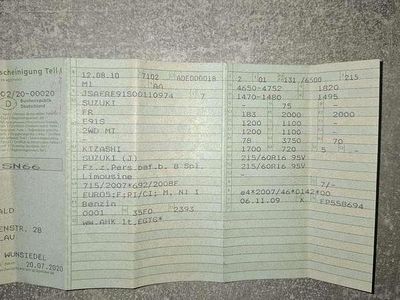 scheinigung Teil I
02/20-00020
D
Bundesrepublik
Deutschland
SN66
ALD
ENSTR. 28
LAU
WUNSIEDEL
20.07.2020
12.08.10 7102 ADE000018
M1 AA
JSAFRE91S00110974 7
SUZUKI
FR
E91S
2WD MT
KIZASHI
SUZUKI (J)
Fz.z.Pers.bef.b. 8 Spl.
Limousine
715/2007*692/2008F
EURO5;F;PI/CI; M, N1 I
Benzin
0001 35F0 2393
ww.AHK lt.EGTG*
2 01 131 /6500 215
4650-4752 1820
1470-1480 1495
- 75 -
183 2000 2000
1200 1100 -
1200 1100 -
78 3750 70
1700 720 5 -
215/60R16 95V
215/60R16 95V
-
7/-
e4*2007/46*0142*00
06.11.09 K EP558694